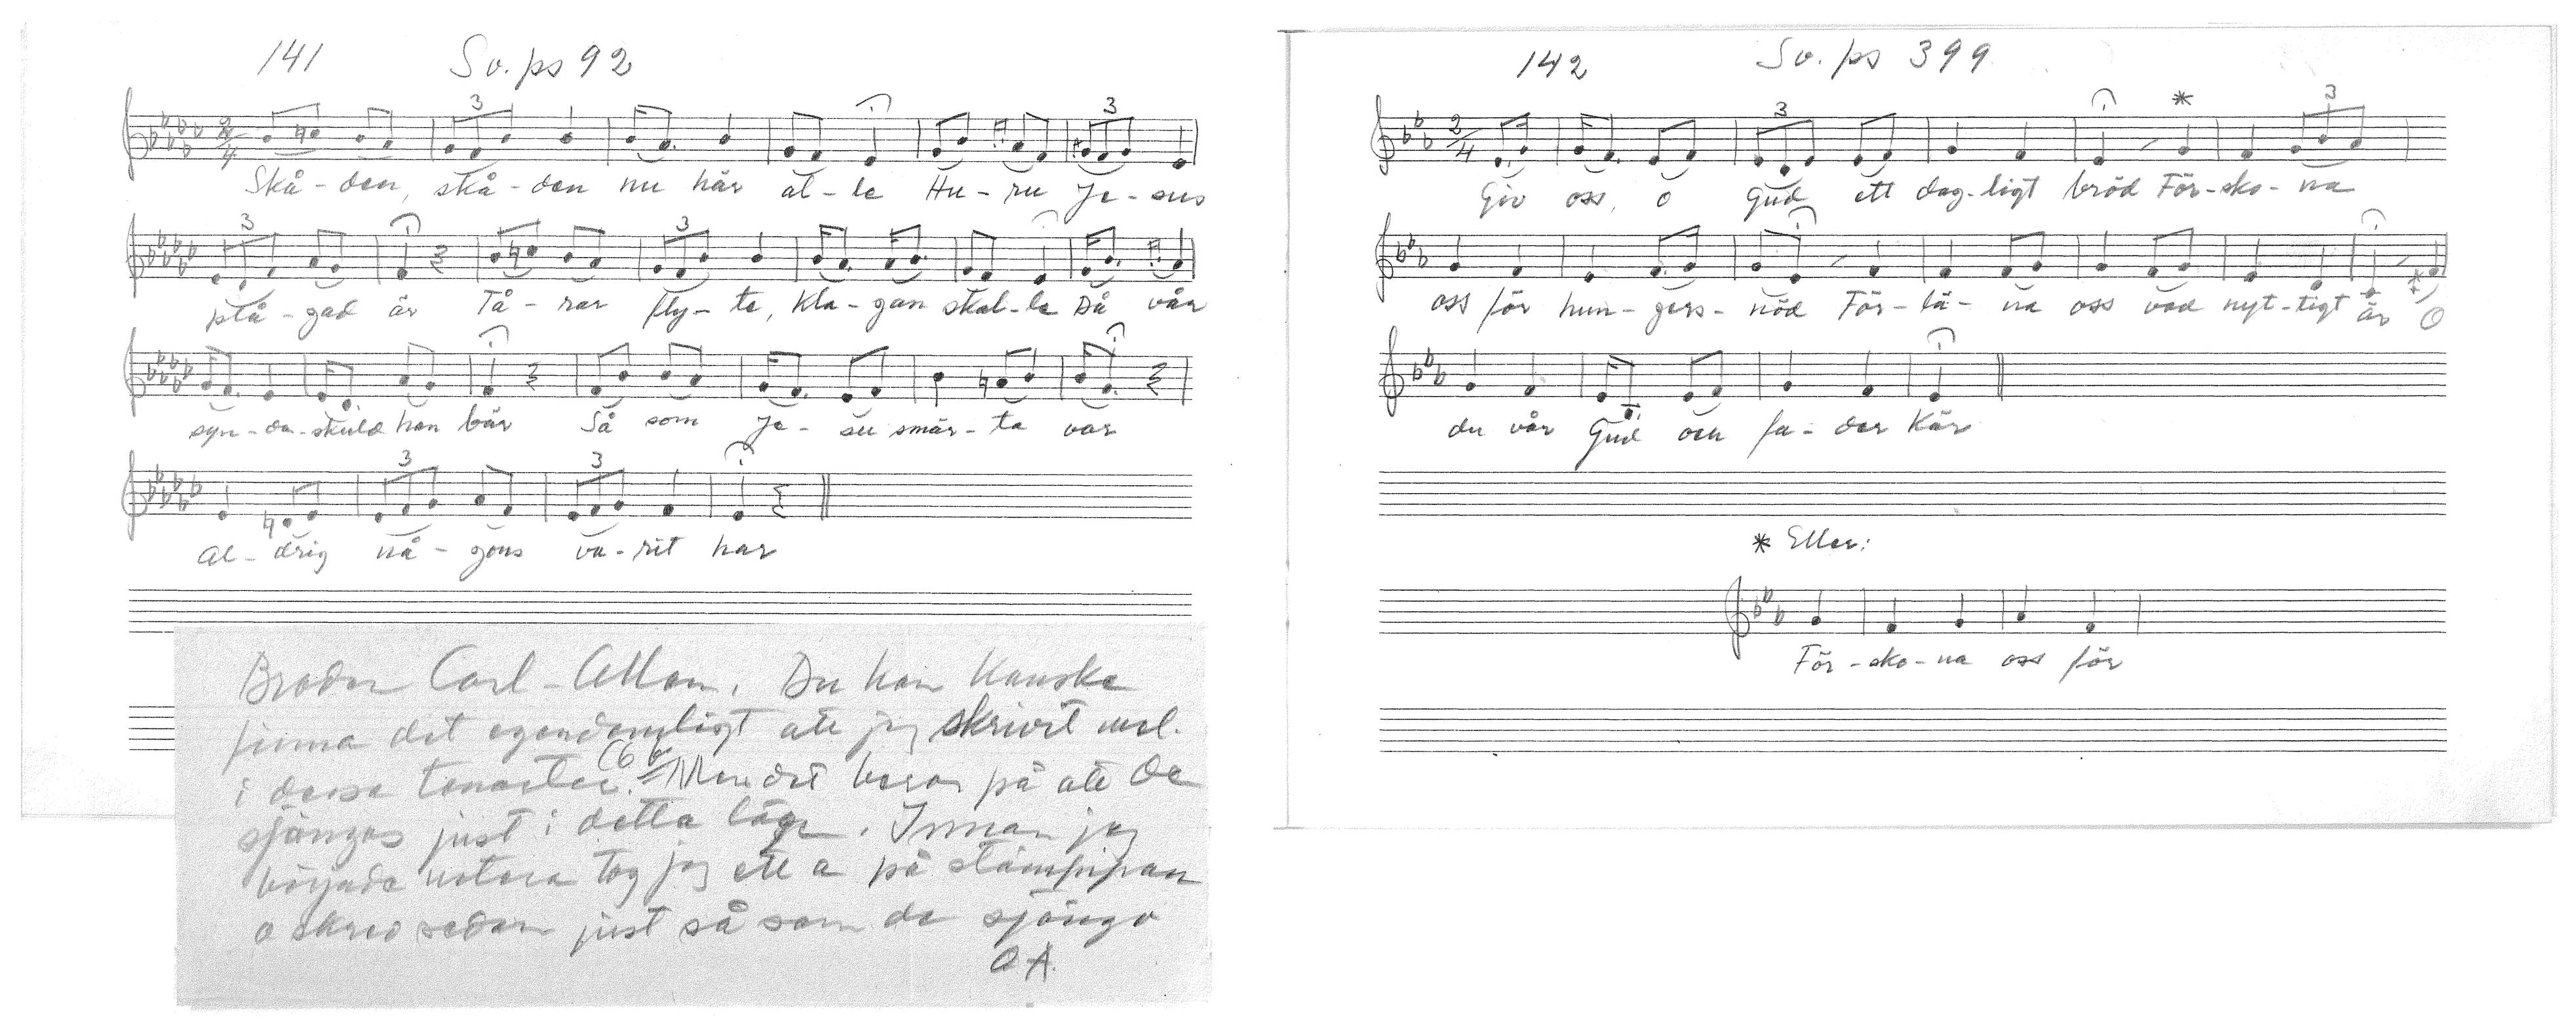 141 Sv. ps 92
3 3
Skå - den, skå - den nu här al - le Hu - ru Je - sus
3 3
plå - gad är Tå - rar fly - te, kla - gan skal - le Då vår
syn - da - skuld han bär Så som Je - su smär - ta var
3 3
al - drig nå - gons va - rit har
Broder Carl-Allan. Du kan kanske
finna det egendomligt att jag skrivit mel.
i dessa tonarter. (6 b) Men det beror på att de
sjöngos just i detta läge. Innan jag
började notera tog jag ett a på stämpipan
o skrev sedan just så som de sjöngo
O A.
142 Sv. ps 399
2/4 3 * 3
Giv oss, o Gud ett dag - ligt bröd För - sko - na
oss för hun - gers - nöd För - lä - na oss vad nyt - tigt är O
du vår Gud och fa - der kär
* Eller:
För - sko - na oss för